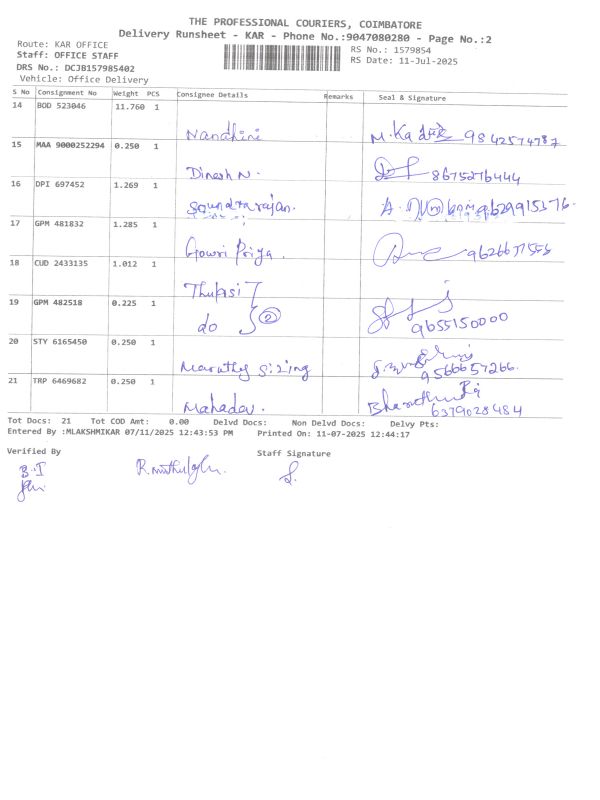 THE PROFESSIONAL COURIERS, COIMBATORE
Delivery Runsheet - KAR - Phone No.:9047080280 - Page No.:2
Route: KAR OFFICE
RS No.: 1579854
Staff: OFFICE STAFF
RS Date: 11-Jul-2025
DRS No.: DCJB157985402
Vehicle: Office Delivery
S No Consignment No Weight PCS Consignee Details Remarks Seal & Signature
14 BOD 523046 11.760 1
Nandhini M. 9842574787
15 MAA 9000252294 0.250 1
Dinesh N. 8675276444
16 DPI 697452 1.269 1
Soundtarajan. 9629915376.
17 GPM 481832 1.285 1
Gowri Priya. 9626677556
18 CUD 2433135 1.012 1
Thulasi
19 GPM 482518 0.225 1
do 2 9655150000
20 STY 6165450 0.250 1
Marathy Sizing 9566657266.
21 TRP 6469682 0.250 1
Mahadev. 6379028484
Tot Docs: 21 Tot COD Amt: 0.00 Delvd Docs: Non Delvd Docs: Delvy Pts:
Entered By :MLAKSHMIKAR 07/11/2025 12:43:53 PM Printed On: 11-07-2025 12:44:17
Verified By Staff Signature